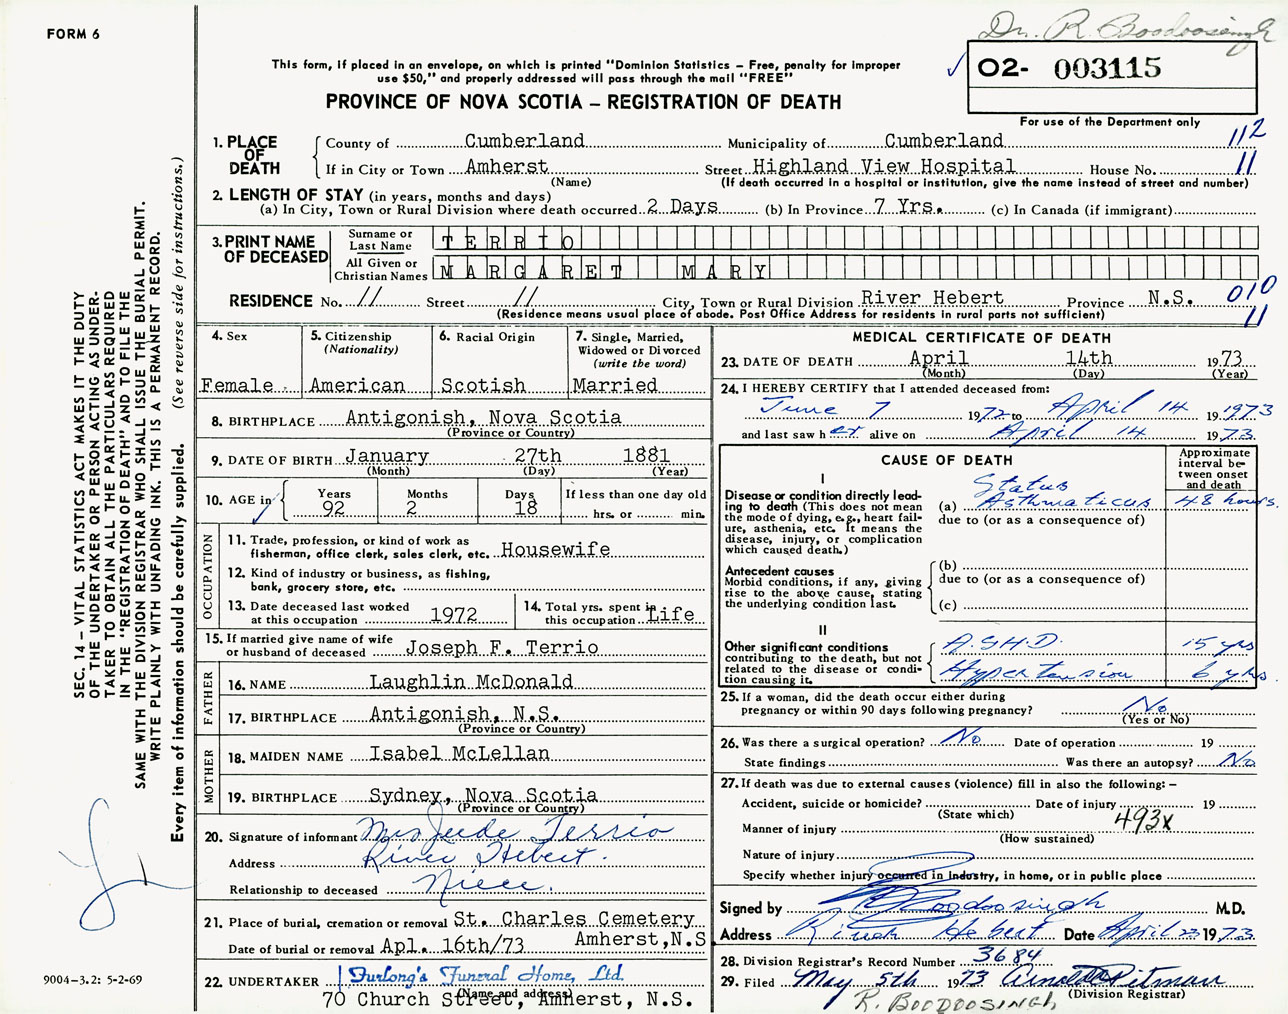 FORM 6
Dr. R. Boodoosingh
This form, if placed in an envelope, on which is printed "Dominion Statistics – Free, penalty for improper
use $50," and properly addressed will pass through the mail "FREE"
PROVINCE OF NOVA SCOTIA – REGISTRATION OF DEATH
✓ 02- 003115
For use of the Department only
1. PLACE OF DEATH
County of Cumberland Municipality of Cumberland 112
If in City or Town Amherst Street Highland View Hospital House No. 11
(Name) (If death occurred in a hospital or institution, give the name instead of street and number)
2. LENGTH OF STAY (in years, months and days)
(a) In City, Town or Rural Division where death occurred 2 Days (b) In Province 7 Yrs. (c) In Canada (if immigrant)
3. PRINT NAME OF DECEASED
Surname or Last Name TERRIO
All Given or Christian Names MARGARET MARY
RESIDENCE No. // Street // City, Town or Rural Division River Hebert Province N.S. 010
(Residence means usual place of abode. Post Office Address for residents in rural parts not sufficient) 11
4. Sex
Female
5. Citizenship
(Nationality)
American
6. Racial Origin
Scotish
7. Single, Married,
Widowed or Divorced
(write the word)
Married
8. BIRTHPLACE Antigonish, Nova Scotia
(Province or Country)
9. DATE OF BIRTH January 27th 1881
(Month) (Day) (Year)
10. AGE in
Years Months Days If less than one day old
92 2 18 hrs. or min.
OCCUPATION
11. Trade, profession, or kind of work as
fisherman, office clerk, sales clerk, etc. Housewife
12. Kind of industry or business, as fishing,
bank, grocery store, etc.
13. Date deceased last worked
at this occupation 1972
14. Total yrs. spent in
this occupation Life
15. If married give name of wife
or husband of deceased Joseph F. Terrio
FATHER
16. NAME Laughlin McDonald
17. BIRTHPLACE Antigonish, N.S.
(Province or Country)
MOTHER
18. MAIDEN NAME Isabel McLellan
19. BIRTHPLACE Sydney, Nova Scotia
(Province or Country)
20. Signature of informant Mrs Jude Terrio
Address River Hebert.
Relationship to deceased Niece.
21. Place of burial, cremation or removal St. Charles Cemetery
Date of burial or removal Apl. 16th/73 Amherst, N.S
22. UNDERTAKER Furlong's Funeral Home, Ltd.
(Name and address)
70 Church Street, Amherst, N.S.
MEDICAL CERTIFICATE OF DEATH
23. DATE OF DEATH April 14th 1973
(Month) (Day) (Year)
24. I HEREBY CERTIFY that I attended deceased from:
June 7 1972 to April 14 19 1973
and last saw her alive on April 14 1973
CAUSE OF DEATH
Approximate
interval be-
tween onset
and death
I
Disease or condition directly lead-
ing to death (This does not mean
the mode of dying, e.g., heart fail-
ure, asthenia, etc. It means the
disease, injury, or complication
which caused death.)
Status
(a) Asthmaticus 48 hours.
due to (or as a consequence of)
Antecedent causes
Morbid conditions, if any, giving
rise to the above cause, stating
the underlying condition last.
(b)
due to (or as a consequence of)
(c)
II
Other significant conditions
contributing to the death, but not
related to the disease or condi-
tion causing it.
A.S.H.D. 15 yrs
Hypertension 6 yrs.
25. If a woman, did the death occur either during
pregnancy or within 90 days following pregnancy? No
(Yes or No)
26. Was there a surgical operation? No Date of operation 19
State findings Was there an autopsy? No
27. If death was due to external causes (violence) fill in also the following: –
Accident, suicide or homicide? Date of injury 19
(State which)
493x
Manner of injury
(How sustained)
Nature of injury
Specify whether injury occurred in industry, in home, or in public place
Signed by R Boodoosingh M.D.
Address River Hebert Date April 23 1973
28. Division Registrar's Record Number 3684
29. Filed May 5th 1973 Pitman
(Division Registrar)
R. BOODOOSINGH
SEC. 14 – VITAL STATISTICS ACT MAKES IT THE DUTY
OF THE UNDERTAKER OR PERSON ACTING AS UNDER-
TAKER TO OBTAIN ALL THE PARTICULARS REQUIRED
IN THE "REGISTRATION OF DEATH" AND TO FILE THE
SAME WITH THE DIVISION REGISTRAR WHO SHALL ISSUE THE BURIAL PERMIT.
WRITE PLAINLY WITH UNFADING INK. THIS IS A PERMANENT RECORD.
Every item of information should be carefully supplied. (See reverse side for instructions.)
9004–3.2: 5-2-69